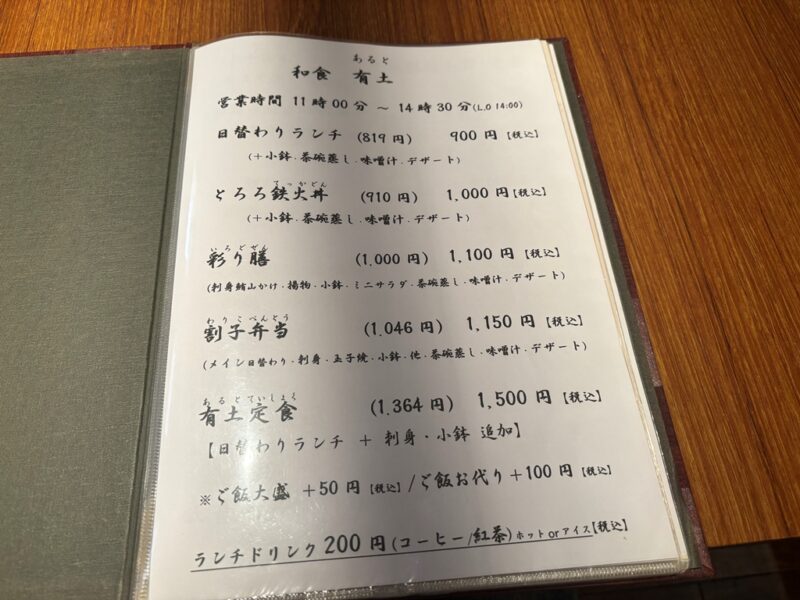 あると
和食 有土
営業時間 11時00分 ～ 14時30分(L.O 14:00)
日替わりランチ (819円) 900円【税込】
(+小鉢.茶碗蒸し.味噌汁.デザート)
てっかどん
とろろ鉄火丼 (910円) 1,000円【税込】
(+小鉢.茶碗蒸し.味噌汁.デザート)
いろどぜん
彩り膳 (1,000円) 1,100円【税込】
(刺身鮪山かけ.揚物.小鉢.ミニサラダ.茶碗蒸し.味噌汁.デザート)
わりこべんとう
割子弁当 (1,046円) 1,150円【税込】
(メイン日替わり.刺身.玉子焼.小鉢.他.茶碗蒸し.味噌汁.デザート)
あるとていしょく
有土定食 (1,364円) 1,500円【税込】
【日替わりランチ + 刺身・小鉢 追加】
※ご飯大盛 +50円【税込】/ご飯お代り+100円【税込】
ランチドリンク 200円(コーヒー/紅茶)ホットorアイス【税込】